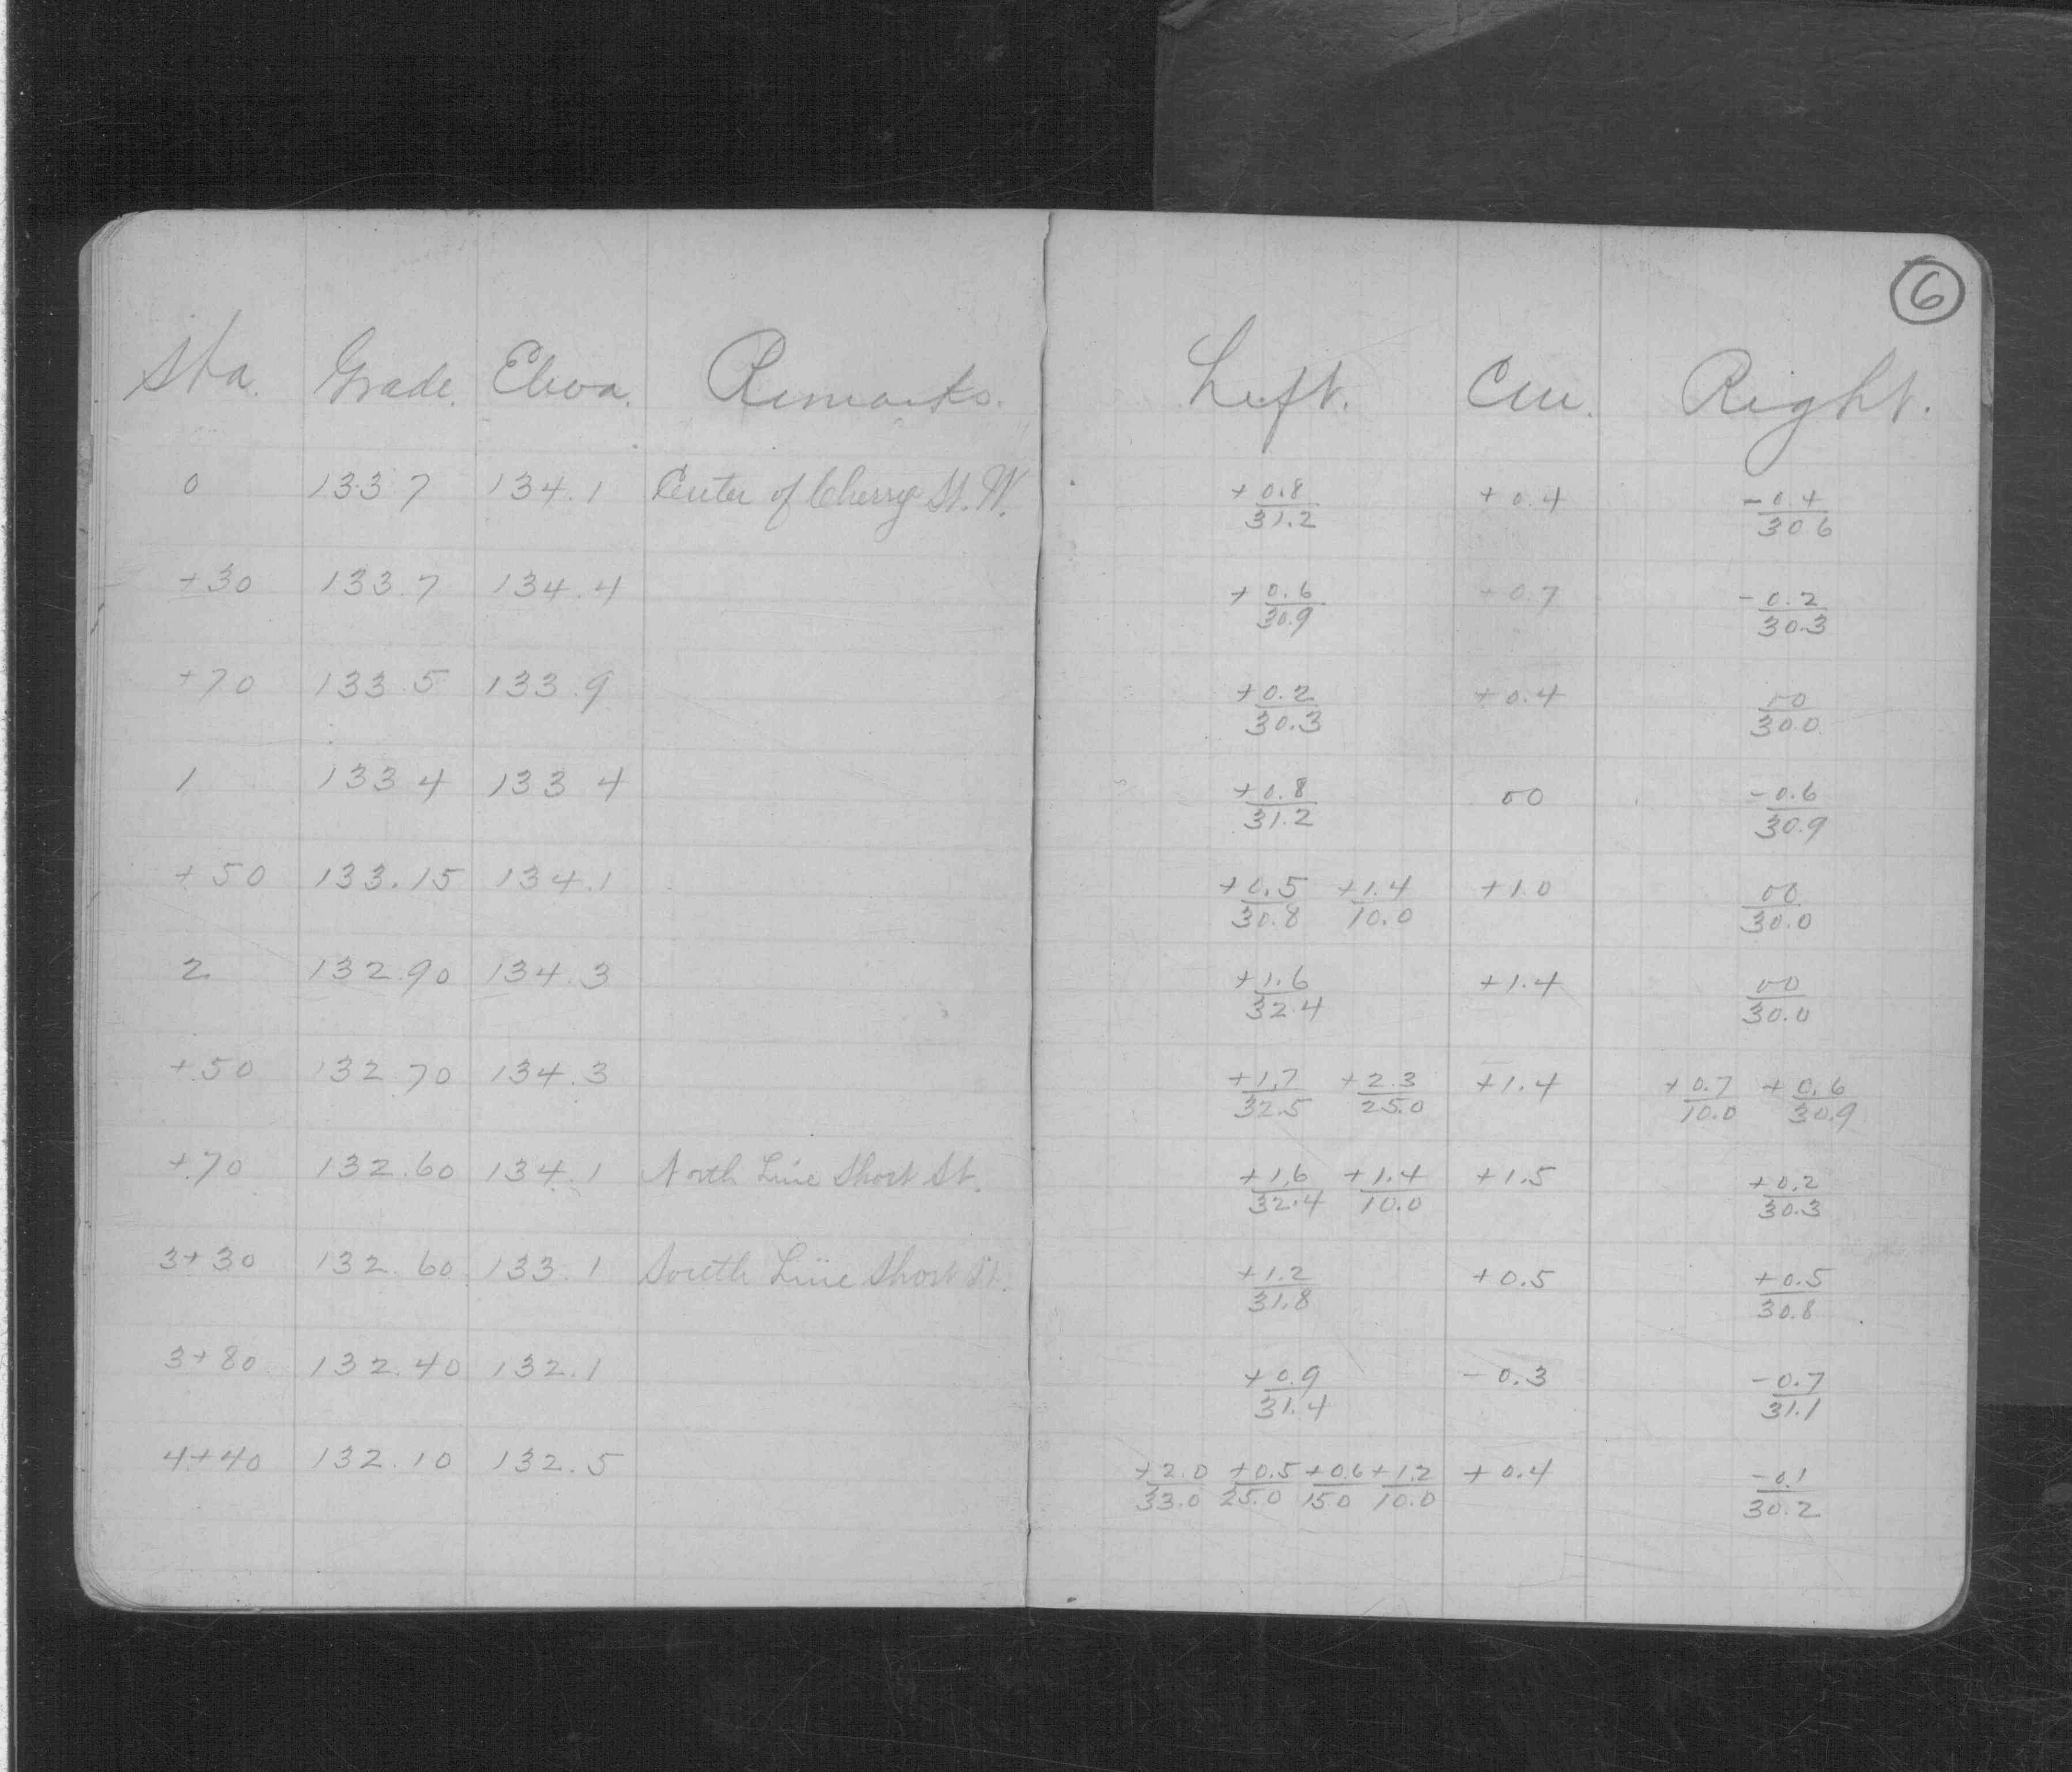 6
Sta. Grade. Eleva. Remarks. Left. Cen. Right.
0 133.7 134.1 Center of Cherry St. W. +0.8/31.2 +0.4 -0.4/30.6
+30 133.7 134.4 +0.6/30.9 +0.7 -0.2/30.3
+70 133.5 133.9 +0.2/30.3 +0.4 00/30.0
1 133 4 133 4 +0.8/31.2 00 -0.6/30.9
+50 133.15 134.1 +0.5/30.8 +1.4/10.0 +1.0 00/30.0
2 132.90 134.3 +1.6/32.4 +1.4 00/30.0
+50 132.70 134.3 +1.7/32.5 +2.3/25.0 +1.4 +0.7/10.0 +0.6/30.9
+70 132.60 134.1 North Line Short St. +1.6/32.4 +1.4/10.0 +1.5 +0.2/30.3
3+30 132.60 133.1 South Line Short St. +1.2/31.8 +0.5 +0.5/30.8
3+80 132.40 132.1 +0.9/31.4 -0.3 -0.7/31.1
4+40 132.10 132.5 +2.0/33.0 +0.5/25.0 +0.6/15.0 +1.2/10.0 +0.4 -0.1/30.2